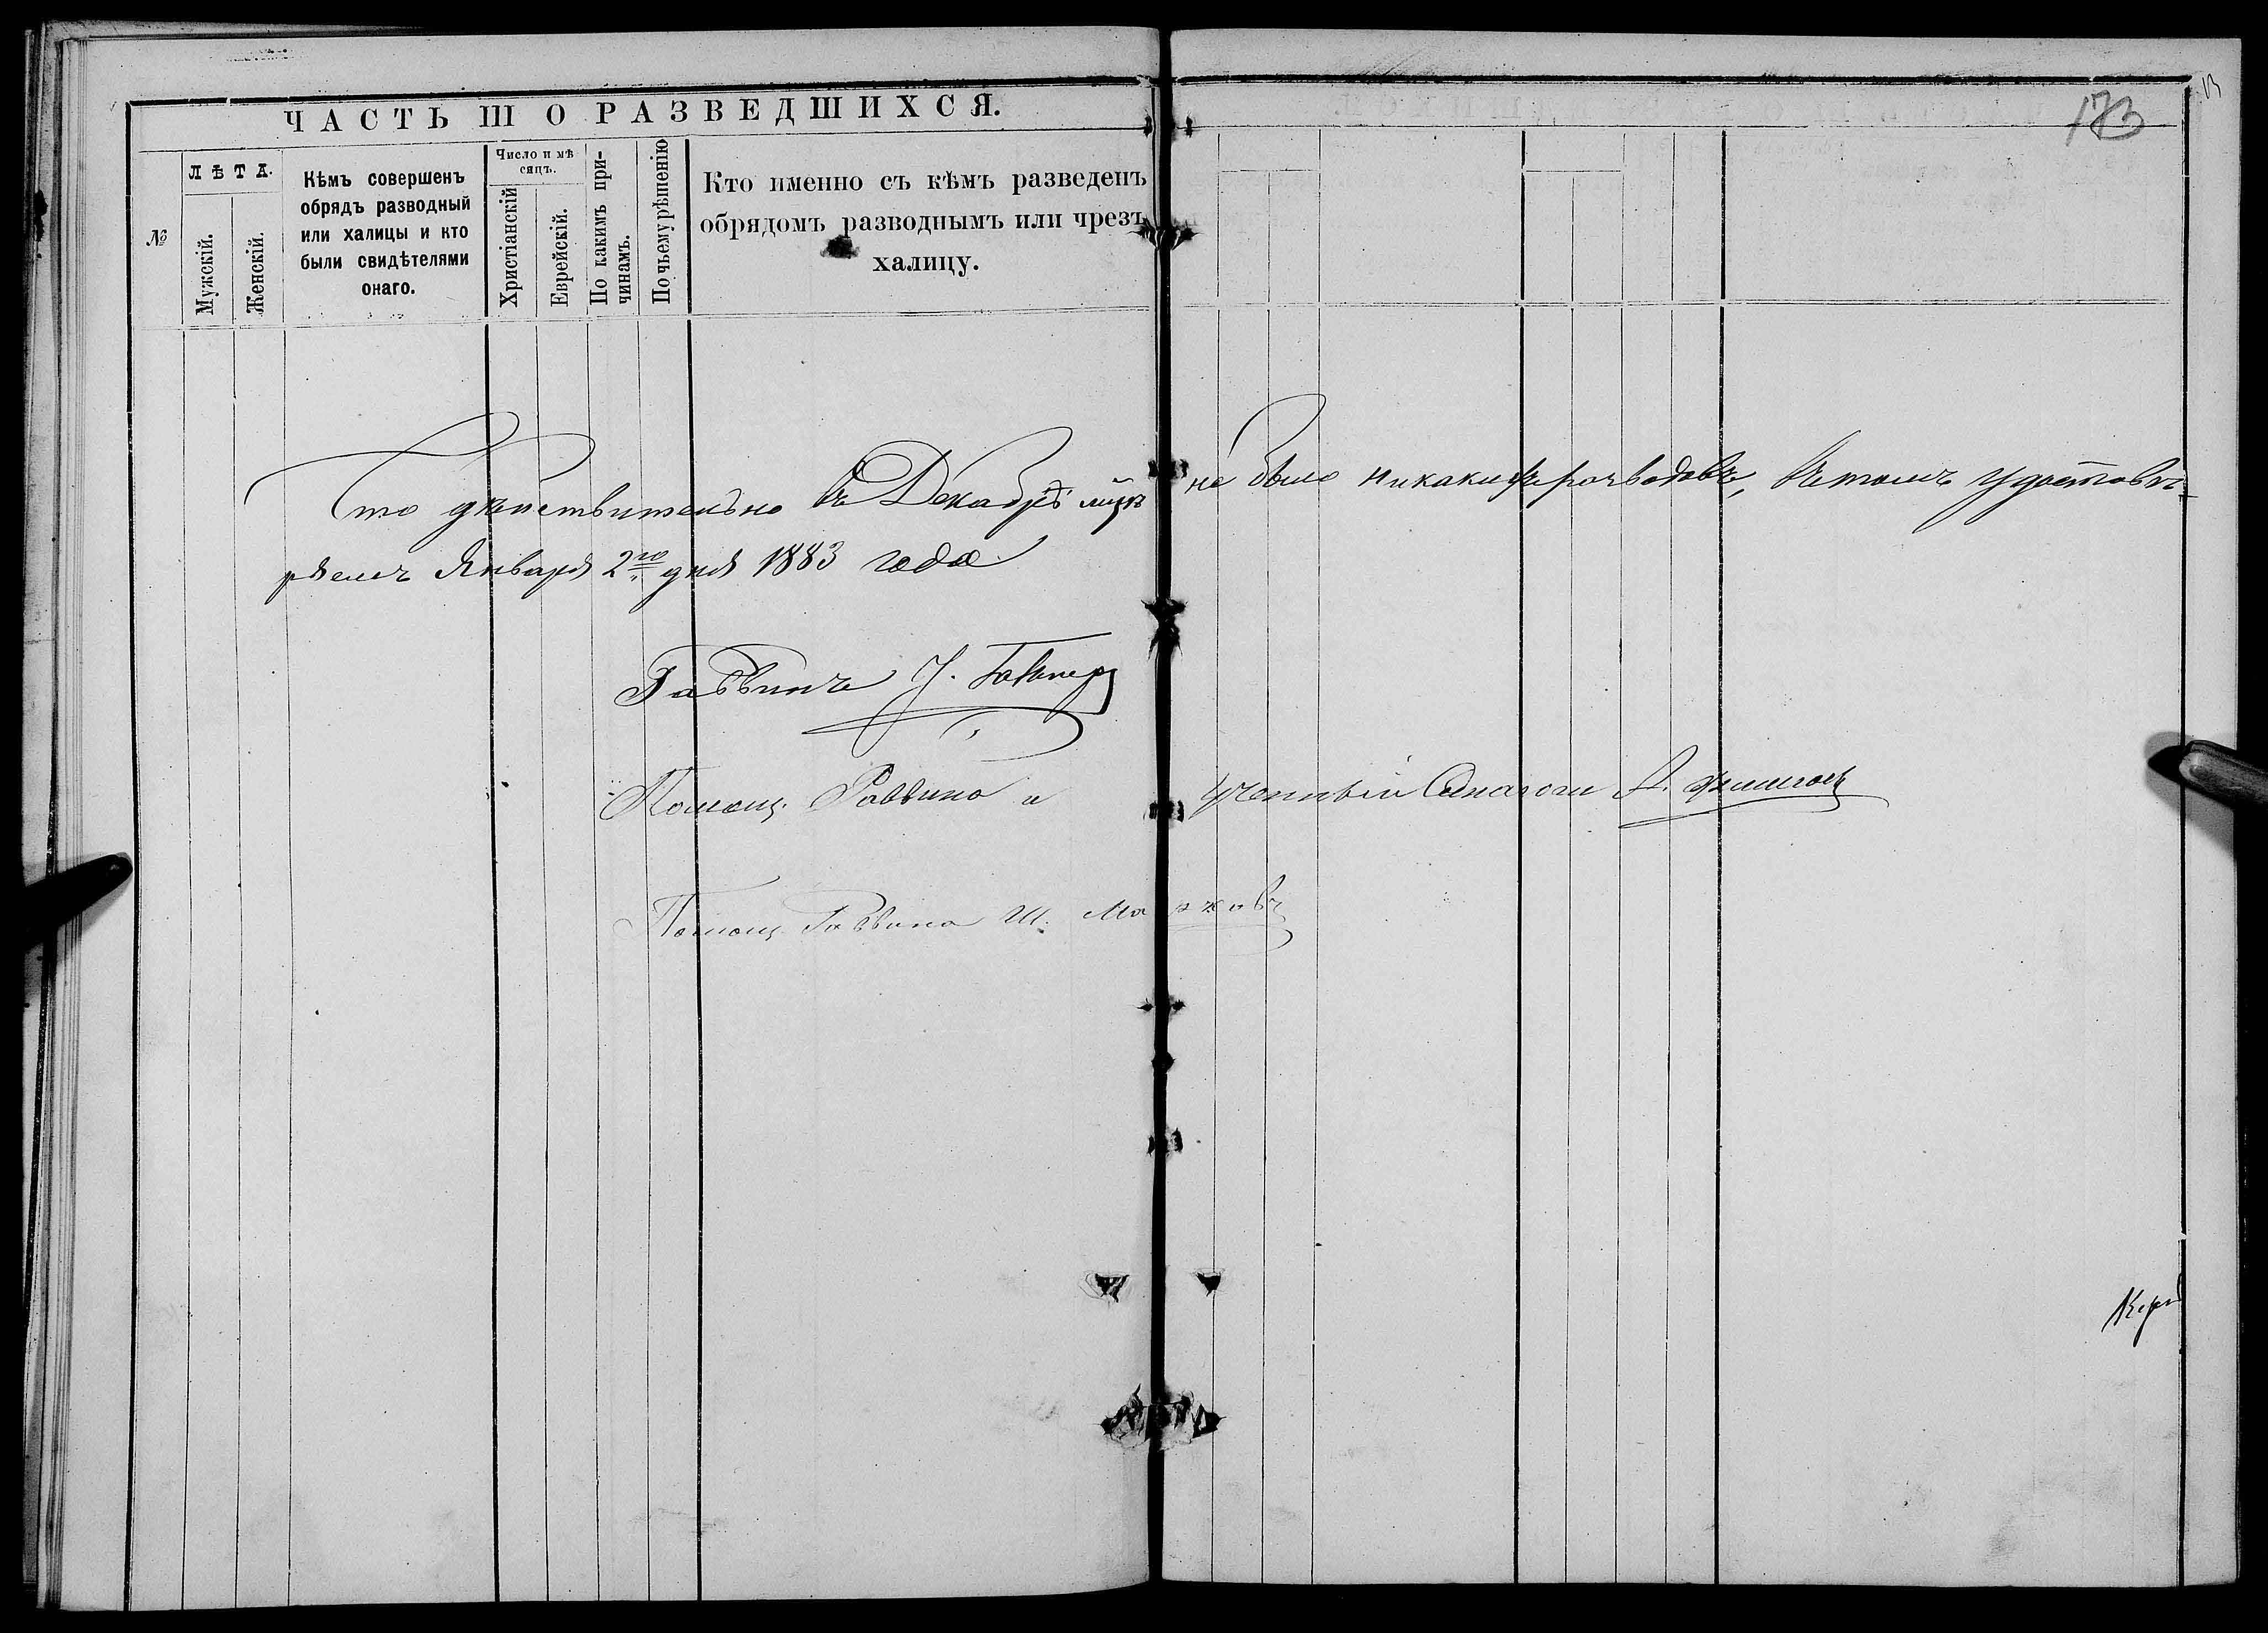 ЧАСТЬ III О РАЗВЕДШИХСЯ.
173
13
№
ЛѢТА.
Мужскій.
Женскій.
Кѣмъ совершенъ
обрядъ разводный
или халицы и кто
были свидѣтелями
онаго.
Число и мѣ
сяцъ.
Христіанскій
Еврейскій.
По какимъ при-
чинамъ.
По чьему рѣшенію
Кто именно съ кѣмъ разведенъ
обрядомъ разводнымъ или чрезъ
халицу.
Что дѣйствительно въ Декабрѣ м-цѣ не было никакихъ разводовъ, въ томъ удостовѣ-
ряемъ Января 2го дня 1883 года
Раввинъ
Помощ. Раввина и ученный Синагоги А.
Помощ. Раввина Ш.